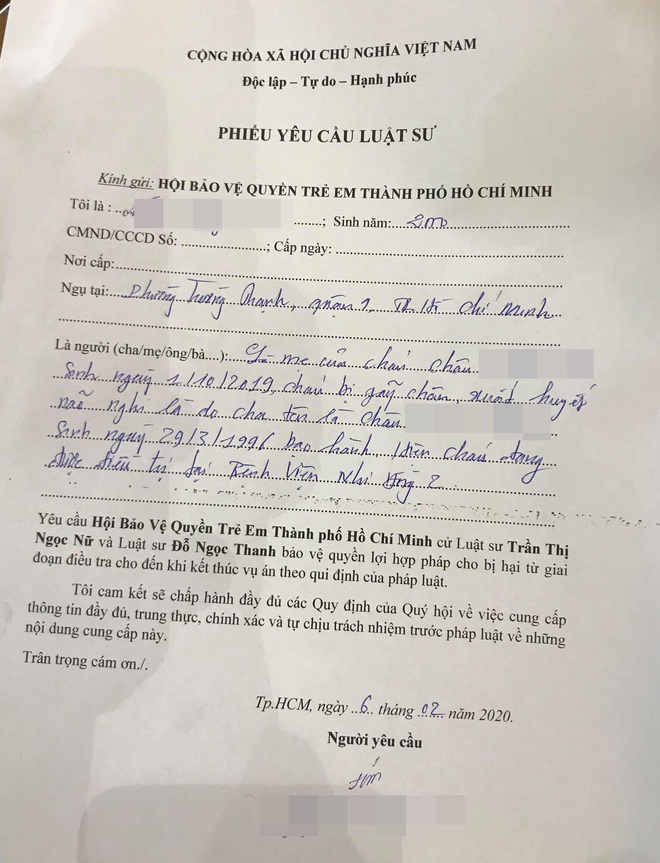 CỘNG HÒA XÃ HỘI CHỦ NGHĨA VIỆT NAM
Độc lập – Tự do – Hạnh phúc
PHIẾU YÊU CẦU LUẬT SƯ
Kính gửi: HỘI BẢO VỆ QUYỀN TRẺ EM THÀNH PHỐ HỒ CHÍ MINH
Tôi là : ; Sinh năm:
CMND/CCCD Số: ; Cấp ngày:
Nơi cấp:
Ngụ tại: phường Trường Thạnh, quận 9, TP Hồ Chí Minh
Là người (cha/mẹ/ông/bà....): Là mẹ của cháu Châu
Sinh ngày 1/10/2019, cháu bị gãy chân, xuất huyết
não nghi là do cha tên là Châu
Sinh ngày 29/3/1996 bạo hành, Hiện cháu đang
được điều trị tại Bệnh Viện Nhi Đồng 2
Yêu cầu Hội Bảo Vệ Quyền Trẻ Em Thành phố Hồ Chí Minh cử Luật sư Trần Thị
Ngọc Nữ và Luật sư Đỗ Ngọc Thanh bảo vệ quyền lợi hợp pháp cho bị hại từ giai
đoạn điều tra cho đến khi kết thúc vụ án theo qui định của pháp luật.
Tôi cam kết sẽ chấp hành đầy đủ các Quy định của Quý hội về việc cung cấp
thông tin đầy đủ, trung thực, chính xác và tự chịu trách nhiệm trước pháp luật về những
nội dung cung cấp này.
Trân trọng cám ơn./.
Tp.HCM, ngày 6 tháng 02 năm 2020.
Người yêu cầu